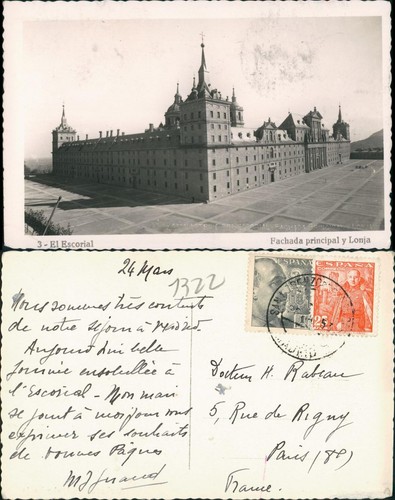 3 - El Escorial
Fachada principal y Lonja
24 Mars
1322
Nous sommes très contents
de notre séjour à Madrid
Aujourd'hui belle
journée ensoleillée à
l'Escorial - Mon mari
se joint à moi pour vous
exprimer ses souhaits
de bonnes Pâques
ESPAÑA
ESPAÑA
25
SAN LORENZO
MADRID
Docteur H. Rabeau
5, Rue de Rigny
Paris (8e)
France.